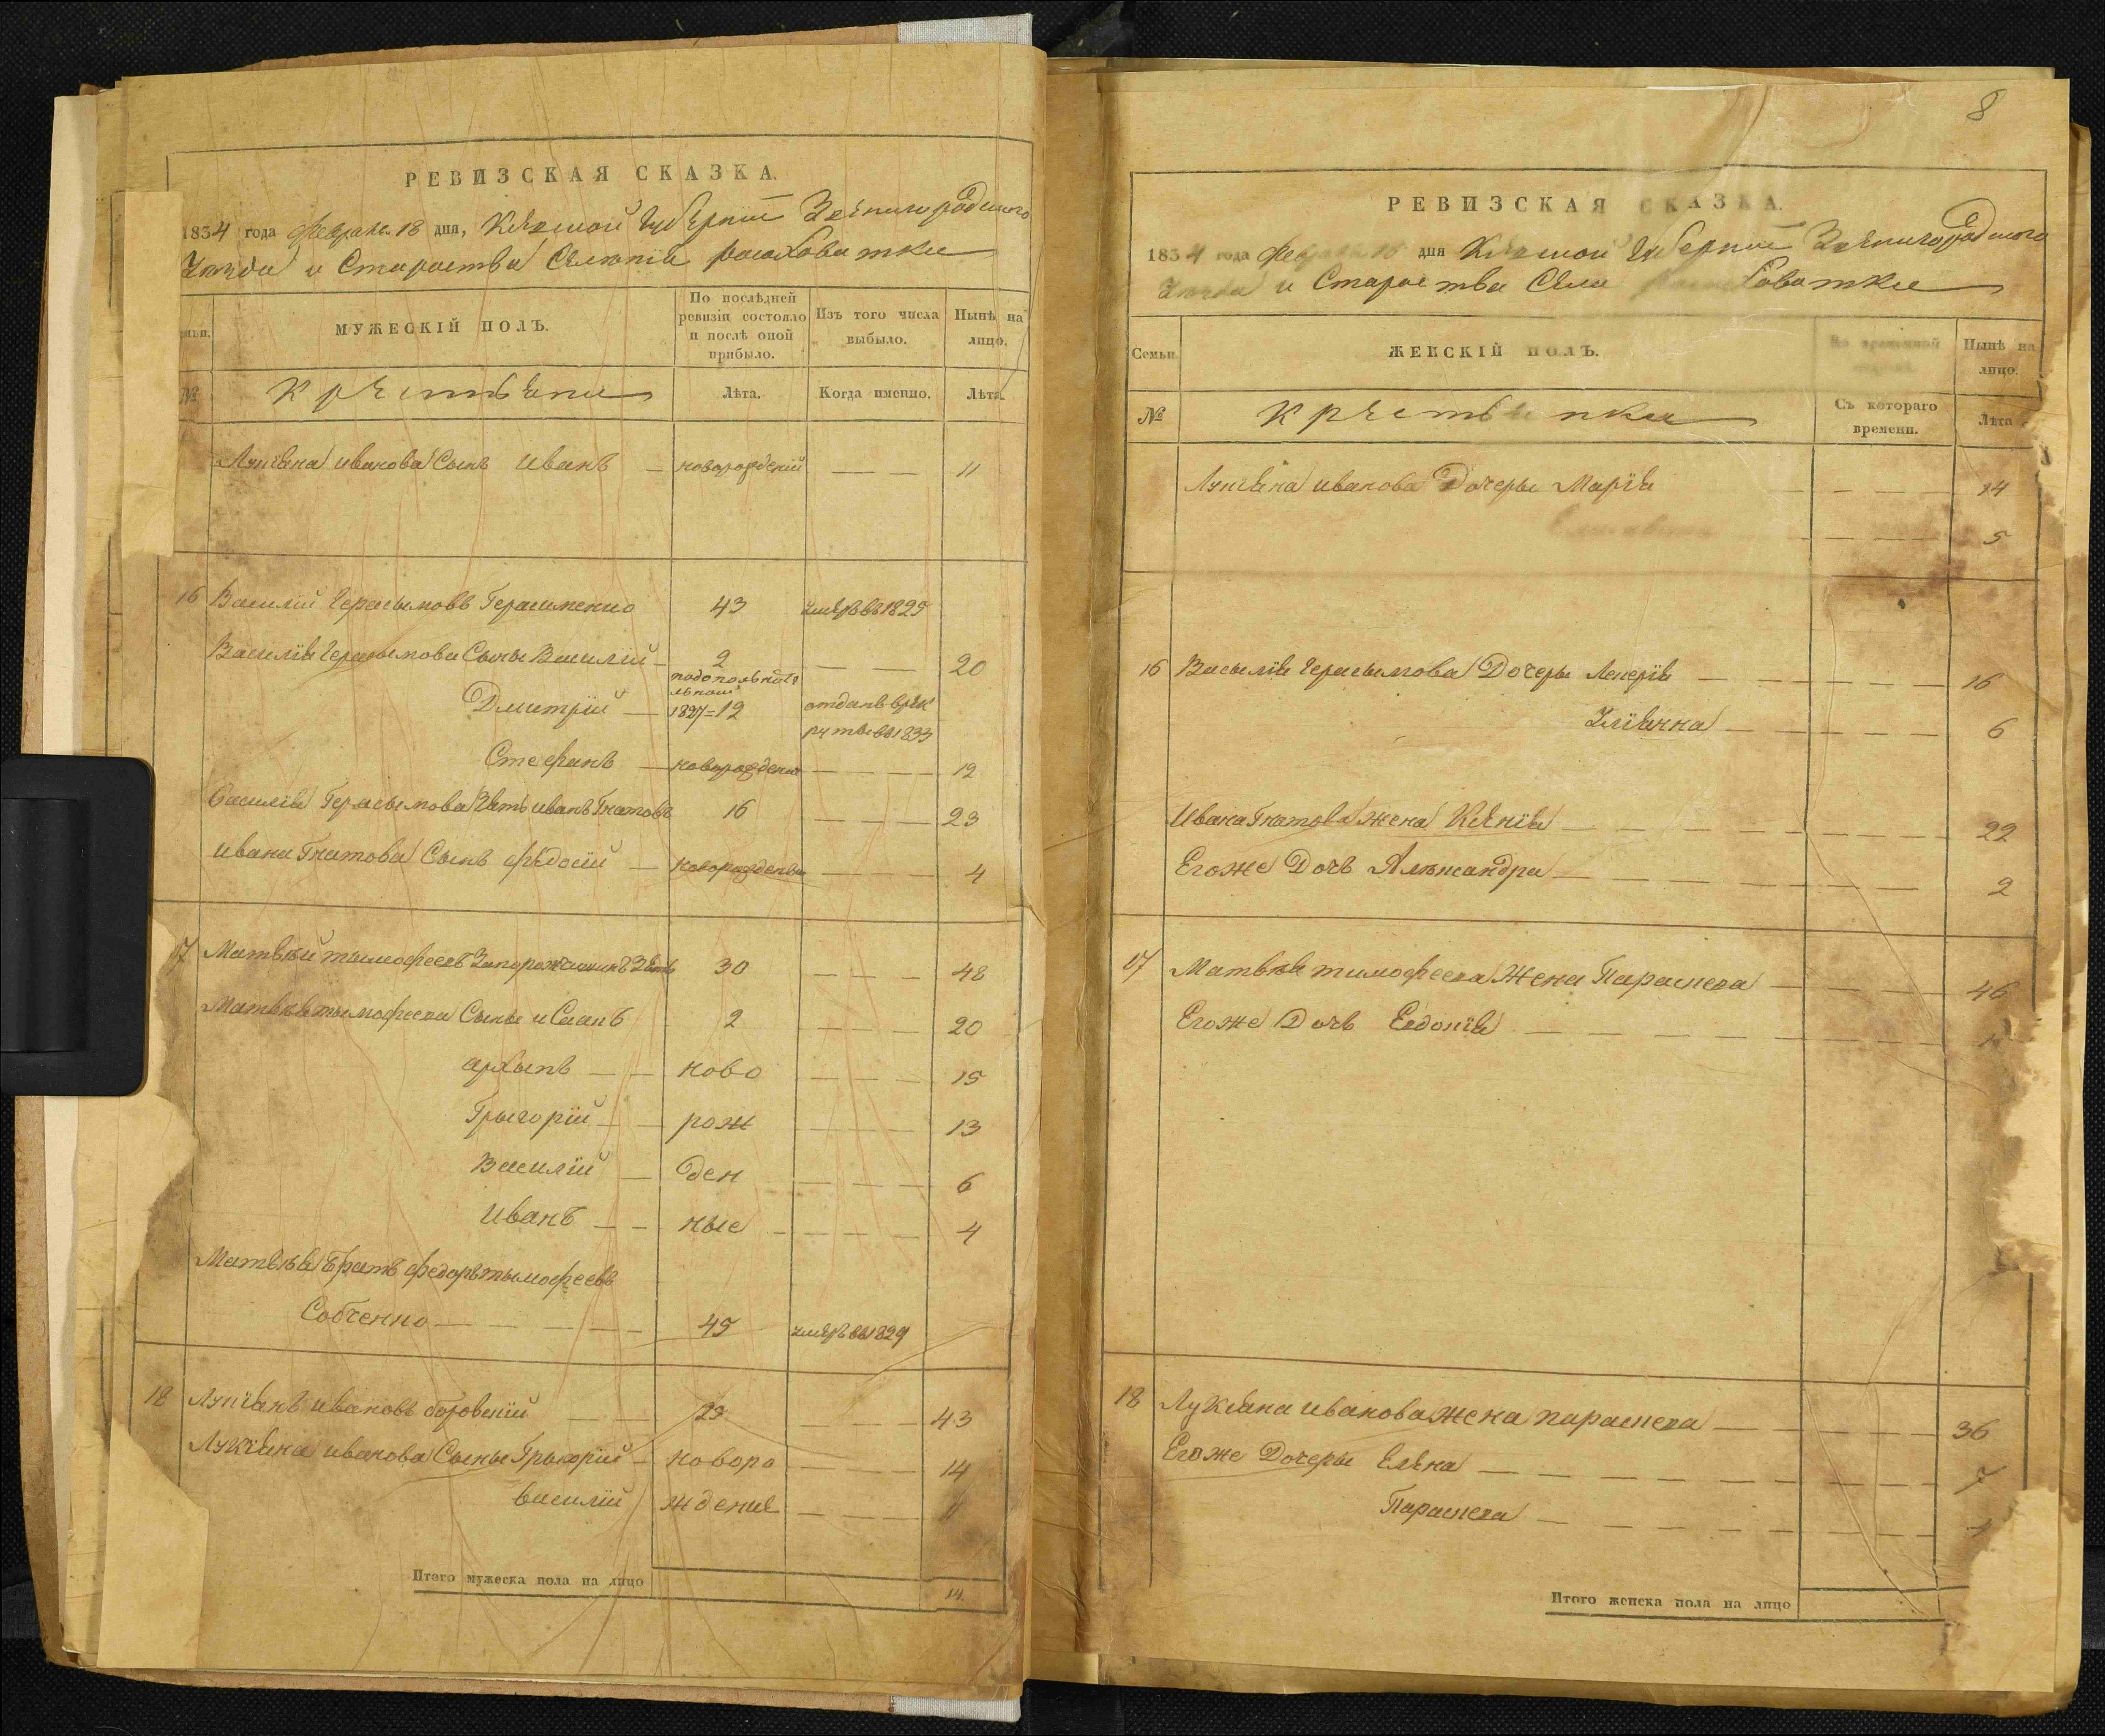 РЕВИЗСКАЯ СКАЗКА.
1834 года февраля 18 дня, Киевской Губернии Звенигородского
Уезда и Староства Селения Росоховатки
МУЖЕСКІЙ ПОЛЪ.
По послѣдней ревизіи состояло и послѣ оной прибыло.
Изъ того числа выбыло.
Нынѣ на лицо.
№
Крестьяне
Лѣта.
Когда именно.
Лѣта.
Лукіяна иванова Сынъ иванъ — новорожденій — — 11
16 Василій Герасымовъ Герасименко 43 умеръ въ 1825
Василія Герасымова Сыны Василій — 2 — — 20
Дмитрій — 1827 = 12 отданъ в рекруты въ 1833
Стефанъ — новорожденій — — 12
Василія Герасымова Зять иванъ Гнатовъ 16 — — 23
ивана Гнатова Сынъ федосій — новорожденый — — 4
17 Матвѣй тымофеевъ 30 — — 48
Матвѣя тымофеева Сыны 2 — — 20
архыпъ — — ново — — 15
Грыгорій — — рож — — 13
Василій — ден — — 6
иванъ — — ные — — 4
Матвѣя Братъ федоръ тымофеевъ
Собченко — — 45 умеръ въ 1829
18 Лукіянъ ивановъ боровскій — — 23 — — 43
Лукіяна иванова Сыны Грыгорій — новоро — — 14
василій ждение — —
Итого мужеска пола на лицо 14
8
РЕВИЗСКАЯ СКАЗКА.
1834 года дня Киевской Губернии Звенигородского
Уезда и Староства Села
Семьи
ЖЕНСКІЙ ПОЛЪ.
Нынѣ на лицо.
№
Крестьянки
Съ котораго времени.
Лѣта
Лукіяна иванова Дочеры Марія — — 14
— — 5
16 Васылія Герасымова Дочеры — — 16
Уліянна — — 6
ивана Гнатова жена Ксенія — — 22
Егоже Дочь Александра — — 2
17 Матвѣя тимофеева Жена Параскева — — 46
Егоже Дочь Евдокія — —
18 Лукіяна иванова жена параскева — — 36
Егоже Дочеры Елена — — 7
Параскева — —
Итого женска пола на лицо